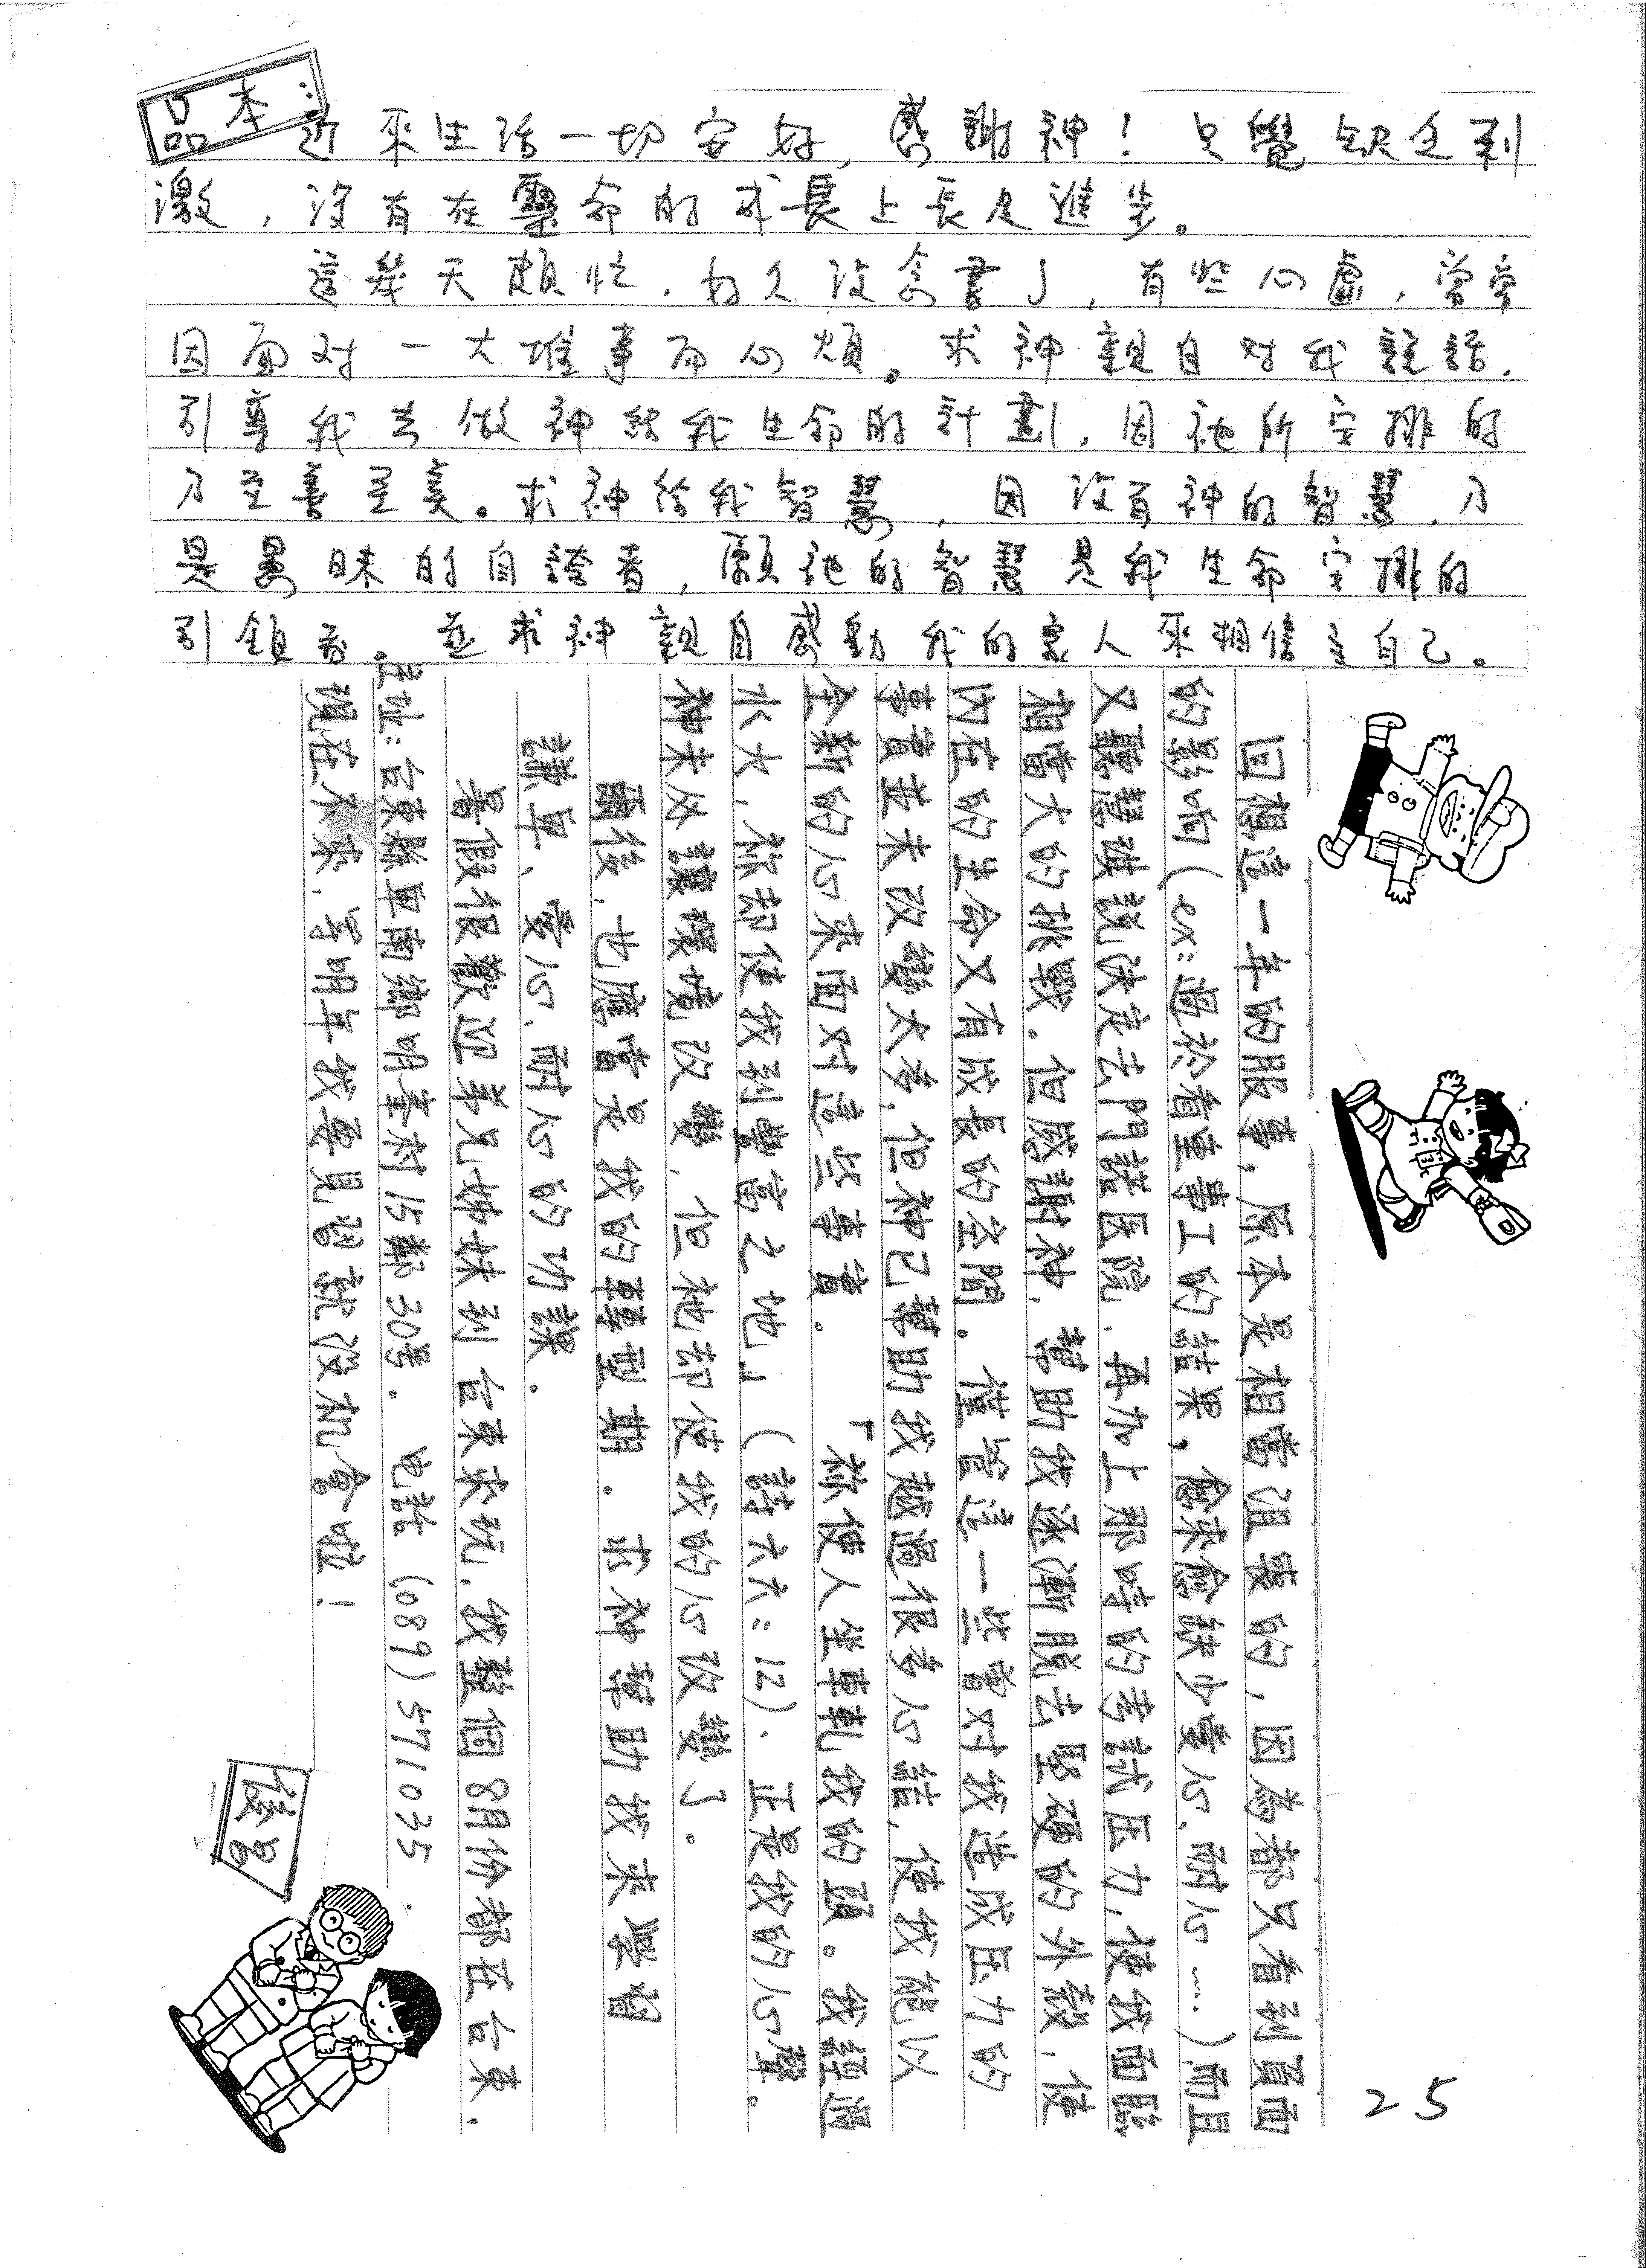 品本:
近來生活一切安好,感謝神!只覺缺乏刺
激,沒有在靈命的成長上長足進步。
這幾天頗忙,好久沒念書了,有些心虛,常常
因面对一大堆事而心煩。求神親自对我說話,
引導我去做神給我生命的計劃,因祂所安排的
乃至善至美。求神給我智慧,因沒有神的智慧,乃
是愚昧的自誇者,願祂的智慧是我生命安排的
引領者。並求神親自感動我的家人來相信主自己。
回想這一年的服事,原本是相當沮喪的,因為都只看到負面
的影响(ex:過於看重事工的結果,愈來愈缺少愛心、耐心……)而且
又聽慧琪說決定去門諾医院,再加上那時的考試压力,使我面臨
相當大的挑戰。但感謝神,幫助我逐漸脫去堅硬的外殼,使
內在的生命又有成長的空間。儘管這一些曾对我造成压力的
事實並未改變太多,但神已幫助我越過很多心結,使我能以
全新的心來面对這些事實.「祢使人坐車軋我的頭。我經過
水火,祢却使我到豐富之地」(詩六六:12).正是我的心聲。
神未必讓環境改變,但祂却使我的心改變了。
爾後,也應當是我的轉型期.求神幫助我來學習
謙卑、愛心、耐心的功課.
暑假很歡迎弟兄姊妹到台東來玩,我整個8月份都在台東.
住址:台東縣卑南鄉明峯村15鄰30号.电話(089)571035.
現在不來,等明年我要見習就沒机會啦!
俊昌
25